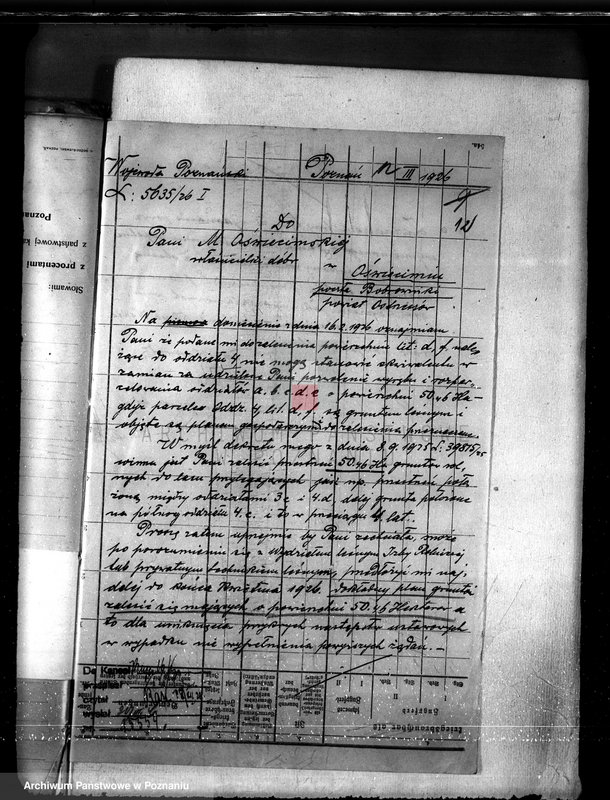 Wojewoda Poznański Poznań 12 III 1926
L: 5635/26 I
9
12
Do
Pani M. Oświecimskiej
właścicielki dóbr
w Oświęcimiu
poczta Bobrowniki
powiat Ostrzeszów
Na doniesienie z dnia 16.2.1926 oznajmiam
Pani że podane mi do zalesienia powierzchnie lit: d. f. nale-
żące do oddziału 4 nie mogą stanowić ekwiwalentu w
zamian za udzielone Pani pozwolenie wyrębu i rozpar-
celowania oddziałów a. b. c. d. e o powierzchni 50.46 Ha
gdyż parcele Oddz. 4 lit. d. f. są gruntem leśnym i
objęte są planem gospodarczym do zalesienia
W myśl dekretu mego z dnia 8.9.1925 L: 39815/25
jest Pani zalesić przestrzeń 50.46 Ha gruntów rol-
nych do lasu przylegających jak np. przestrzeń poło-
żoną między oddziałami 3 c i 4 d. dalej grunta położone
na północ oddziału 4. c. i to w przeciągu 4 lat.
Proszę zatem uprzejmie by Pani zechciała, może
po porozumieniu się z Wydziałem leśnym Izby Rolniczej
lub prywatnym technikiem leśnym, przedłożyć mi naj-
dalej do końca kwietnia 1926. dokładny plan gruntów
zalesić się mających o powierzchni 50.46 Hektarów a
to dla uniknięcia przykrych następstw ustawowych
w wypadku nie wypełnienia powyższych żądań. —
Do Kancel
czytał
wysłał
Poznań
z państwowej ka
z procentami
Słowami:
Archiwum Państwowe w Poznaniu